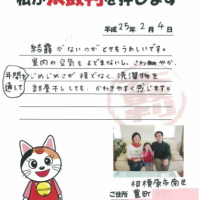 私が太鼓判を押します
平成25年2月4日
結露がないのがとてもうれしいです。
室内の空気もよどまないし、さわやか。
年間を通して
じめじめさが様でなく、洗濯物を
部屋干ししても、かわきやすく感じます。
相模原市南区
ご住所 豊町